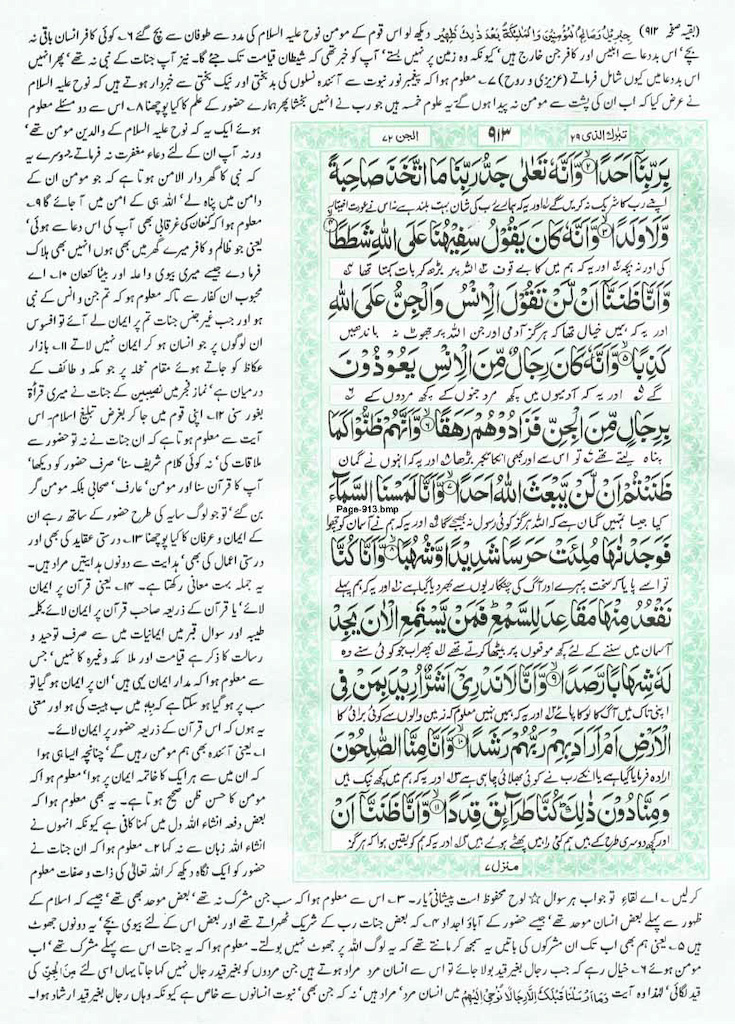 (بقیہ صفحہ ۹۱۲) جِبْرِیْلُ وَصَالِحُ الْمُؤْمِنِیْنَ وَالْمَلٰٓئِكَةُ بَعْدَ ذٰلِكَ ظَهِیْر دیکھ لو اس قوم کے مومن نوح علیہ السلام کی مدد سے طوفان سے بچ گئے ۶۔ کوئی کافر انسان باقی نہ
بچے' اس بددعا سے ابلیس اور کافر جن خارج ہیں' کیونکہ وہ زمین پر نہیں بستے' آپ کو خبر تھی کہ شیطان قیامت تک جئے گا۔ نیز آپ جنات کے نبی نہ تھے' پھر انہیں
اس بددعا میں کیوں شامل فرماتے (عزیزی و روح) ۷۔ معلوم ہوا کہ پیغمبر نور نبوت سے آئندہ نسلوں کی بدبختی اور نیک بختی سے خبردار ہوتے ہیں کہ نوح علیہ السلام
نے عرض کیا کہ اب ان کی پشت سے مومن نہ پیدا ہوں گے۔ یہ علوم خمسہ ہیں جو رب نے انہیں بخشا پھر ہمارے حضور کے علم کا کیا پوچھنا ۸۔ اس سے دو مسئلے معلوم
تبٰرك الذی ۲۹
۹۱۳
الجن ۷۲
بِرَبِّنَاۤ اَحَدًا ۲ وَّاَنَّهٗ تَعٰلٰى جَدُّ رَبِّنَا مَا اتَّخَذَ صَاحِبَةً
اپنے رب کا شریک نہ کریں گے اور یہ کہ ہمارے رب کی شان بہت بلند ہے نہ اس نے عورت اختیار
وَّلَا وَلَدًا ۳ وَّاَنَّهٗ كَانَ یَقُوْلُ سَفِیْهُنَا عَلَى اللّٰهِ شَطَطًا ۴
کی اور نہ بچہ اور یہ کہ ہم میں کا بے وقوف اللہ پر بڑھ کر بات کہتا تھا
وَّاَنَّا ظَنَنَّاۤ اَنْ لَّنْ تَقُوْلَ الْاِنْسُ وَالْجِنُّ عَلَى اللّٰهِ
اور یہ کہ ہمیں خیال تھا کہ ہرگز آدمی اور جن اللہ پر جھوٹ نہ باندھیں
كَذِبًا ۵ وَّاَنَّهٗ كَانَ رِجَالٌ مِّنَ الْاِنْسِ یَعُوْذُوْنَ
گے اور یہ کہ آدمیوں میں کچھ مرد جنوں کے کچھ مردوں کے ۶
بِرِجَالٍ مِّنَ الْجِنِّ فَزَادُوْهُمْ رَهَقًا ۶ وَّاَنَّهُمْ ظَنُّوْا كَمَا
پناہ لیتے تھے تو اس سے اور بھی انکا تکبر بڑھا اور یہ کہ انہوں نے گمان
ظَنَنْتُمْ اَنْ لَّنْ یَّبْعَثَ اللّٰهُ اَحَدًا ۷ وَّاَنَّا لَمَسْنَا السَّمَآءَ
Page-913.bmp
کیا جیسا تمہیں گمان ہے کہ اللہ ہرگز کوئی رسول نہ بھیجے گا اور یہ کہ ہم نے آسمان کو چھوا
فَوَجَدْنٰهَا مُلِئَتْ حَرَسًا شَدِیْدًا وَّشُهُبًا ۸ وَّاَنَّا كُنَّا
تو اسے پایا کہ سخت پہرے اور آگ کی چنگاریوں سے بھر دیا گیا ہے اور یہ کہ ہم پہلے
نَقْعُدُ مِنْهَا مَقَاعِدَ لِلسَّمْعِ ؕ فَمَنْ یَّسْتَمِعِ الْاٰنَ یَجِدْ
آسمان میں سننے کے لئے کچھ موقعوں پر بیٹھا کرتے تھے پھر اب جو کوئی سنے وہ
لَهٗ شِهَابًا رَّصَدًا ۹ وَّاَنَّا لَا نَدْرِیْۤ اَشَرٌّ اُرِیْدَ بِمَنْ فِی
اپنی تاک میں آگ کا لوکا پائے اور یہ کہ ہمیں نہیں معلوم کہ زمین والوں سے کوئی برائی کا
الْاَرْضِ اَمْ اَرَادَ بِهِمْ رَبُّهُمْ رَشَدًا ۱۰ وَّاَنَّا مِنَّا الصّٰلِحُوْنَ
ارادہ فرمایا گیا ہے یا انکے رب نے کوئی بھلائی چاہی ہے اور یہ کہ ہم میں کچھ نیک ہیں
وَمِنَّا دُوْنَ ذٰلِكَ ؕ كُنَّا طَرَآىِٕقَ قِدَدًا ۱۱ وَّاَنَّا ظَنَنَّاۤ اَنْ
اور کچھ دوسری طرح کے ہیں ہم کئی راہیں پھٹے ہوئے ہیں اور یہ کہ ہم کو یقین ہوا کہ ہرگز
منزل ۷
ہوئے ایک یہ کہ نوح علیہ السلام کے والدین مومن تھے'
ورنہ آپ ان کے لئے دعاء مغفرت نہ فرماتے دوسرے یہ
کہ نبی کا گھر دار الامن ہوتا ہے کہ جو مومن ان کے
دامن میں پناہ لے' اللہ ہی کے امن میں آ جائے گا ۹۔
معلوم ہوا کہ کنعان کی غرقابی بھی آپ کی اس دعا سے ہوئی'
یعنی جو ظالم و کافر میرے گھر میں بھی ہوں انہیں بھی ہلاک
فرما دے جیسے میری بیوی واعلہ اور بیٹا کنعان ۱۰۔ اے
محبوب ان کفار سے تاکہ معلوم ہو کہ تم جن و انس کے نبی
ہو اور جب غیر جنس جنات تم پر ایمان لے آئے تو افسوس
ان لوگوں پر جو انسان ہو کر ایمان نہیں لاتے ۱۱۔ بازار
عکاظ کو جاتے ہوئے مقام نخلہ پر جو مکہ و طائف کے
درمیان ہے' نماز فجر میں نصیبین کے جنات نے میری قرأۃ
بغور سنی ۱۲۔ اپنی قوم میں جا کر بغرض تبلیغ اسلام۔ اس
آیت سے معلوم ہوتا ہے کہ ان جنات نے نہ تو حضور سے
ملاقات کی' نہ کوئی کلام شریف سنا' صرف حضور کو دیکھا'
آپ کا قرآن سنا اور مومن' عارف' صحابی بلکہ مومن گر
بن گئے' تو جو لوگ سایہ کی طرح حضور کے ساتھ رہے ان
کے ایمان و عرفان کا کیا پوچھنا ۱۳۔ درستی عقاید کی بھی' اور
درستی اعمال کی بھی' ہدایت سے دونوں ہدایتیں مراد ہیں۔
یہ جملہ بہت معانی رکھتا ہے۔ ۱۴۔ یعنی قرآن پر ایمان
لائے' یا قرآن کے ذریعہ صاحب قرآن پر ایمان لائے کلمہ
طیبہ اور سوال قبر میں ایمانیات میں سے صرف توحید و
رسالت کا ذکر ہے قیامت اور ملائکہ وغیرہ کا نہیں' جس
سے معلوم ہوا کہ مدار ایمان یہی ہیں' ان پر ایمان ہو گیا تو
سب پر ہو گیا ہو سکتا ہے کہ بِہٖ میں ب سببیت کی ہو اور معنی
یہ ہوں کہ اس قرآن کے ذریعہ حضور پر ایمان لائے۔
۱۔ یعنی آئندہ بھی ہم مومن رہیں گے' چنانچہ ایسا ہی ہوا
کہ ان میں سے ہر ایک کا خاتمہ ایمان پر ہوا' معلوم ہوا کہ
مومن کا حسن ظن صحیح ہوتا ہے۔ یہ بھی معلوم ہوا کہ
بعض دفعہ انشاء اللہ دل میں کہنا کافی ہے کیونکہ انہوں نے
انشاء اللہ زبان سے نہ کہا ۲۔ معلوم ہوا کہ ان جنات نے
حضور کو ایک نگاہ دیکھ کر اللہ تعالٰی کی ذات و صفات معلوم
کر لیں۔ اے لقاءِ تو جواب ہر سوال ☆ لوح محفوظ است پیشانی یار۔ ۳۔ اس سے معلوم ہوا کہ سب جن مشرک نہ تھے' بعض موحد بھی تھے' جیسے کہ اسلام کے
ظہور سے پہلے بعض انسان موحد تھے' جیسے حضور کے آباؤ اجداد ۴۔ کہ بعض جنات رب کے شریک ٹھہراتے تھے اور بعض اس کے لئے بیوی بچے' یہ دونوں جھوٹ
ہیں ۵۔ یعنی ہم بھی اب تک ان مشرکوں کی باتیں یہ سمجھ کر مانتے تھے کہ یہ لوگ اللہ پر جھوٹ نہیں بولتے۔ معلوم ہوا کہ یہ جنات اس سے پہلے مشرک تھے' اب
مومن ہوئے ۶۔ خیال رہے کہ جب رجال بغیر قید بولا جائے تو اس سے انسان مرد مراد ہوتے ہیں جن مردوں کو بغیر قید رجال نہیں کہا جاتا یہاں اسی لئے مِنَ الْجِنِّ کی
قید لگائی' لہٰذا وہ آیت وَمَاۤ اَرْسَلْنَا قَبْلَكَ اِلَّا رِجَالًا نُّوْحِیْۤ اِلَیْهِمْ میں انسان مرد' مراد ہیں' نہ کہ جن بھی' نبوت انسانوں سے خاص ہے کیونکہ وہاں رجال بغیر قید ارشاد ہوا۔